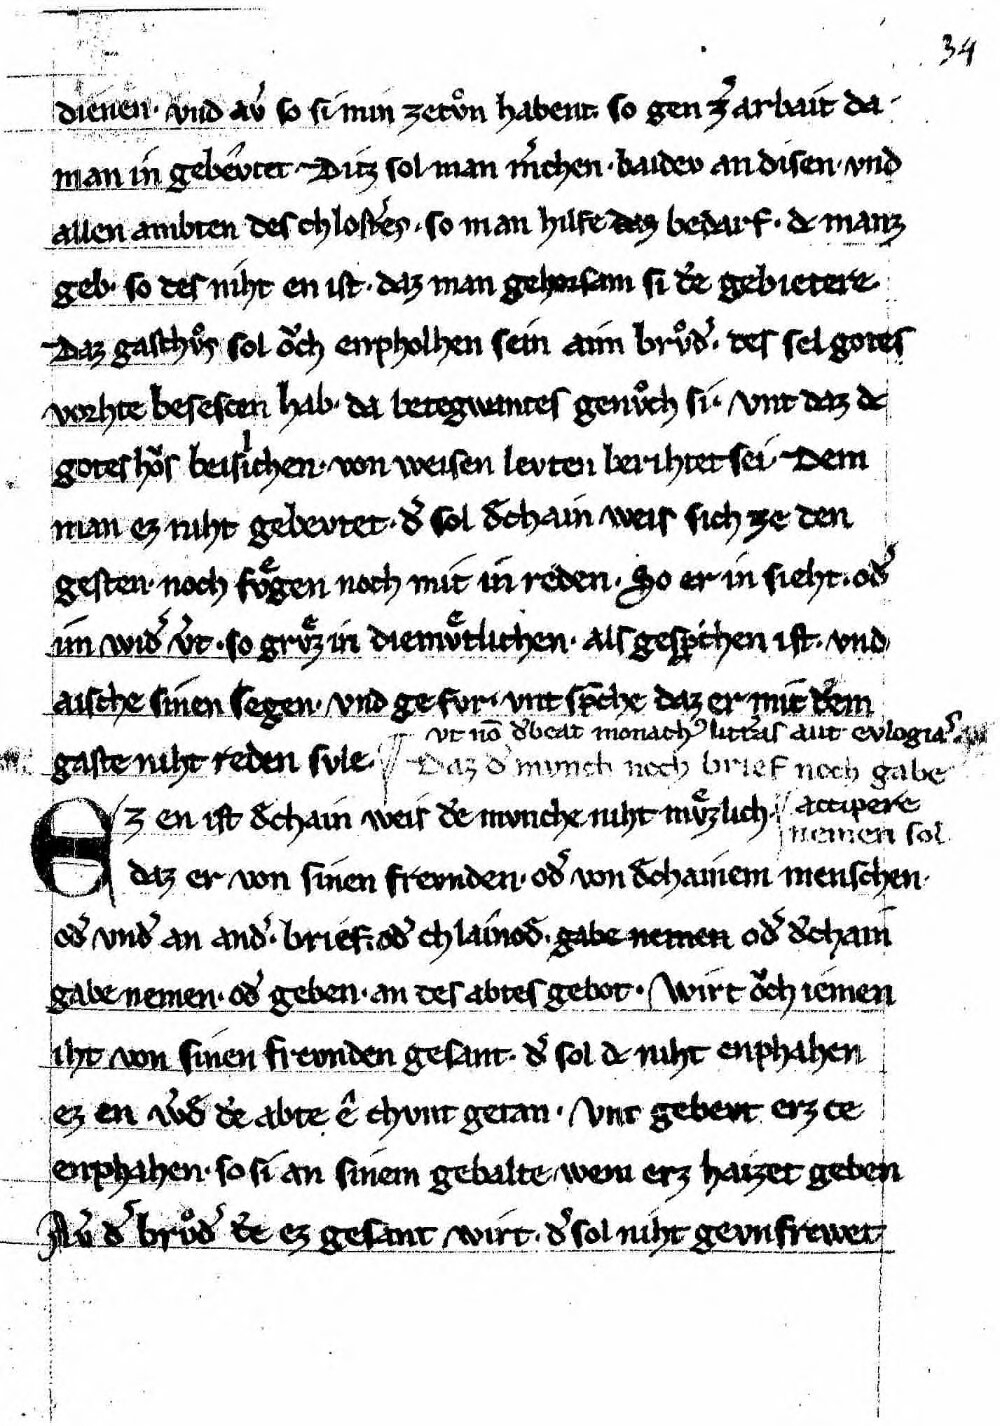 34
dienen · vnd av̓ so si niin zetvͦn habent. so gen z̓ arbait da ·
man in gebevtet · Ditz sol man m̓chen · baidev an disen · vnd
allen ambten des chlost̓es · so man hilfe daz bedarf · dc manz
geb · so des niht en ist · daz man gehorsam si d̓e gebietere ·
Daz gasthvͦs sol oͮch enpholhen sein aim brvͦd̓ · des sel gotes
vorhte besescen hab · da betegwantes genvͦch si · Vnt daz dc
gotes hoͮs beisichen · von weisen levten berihtet sei · Dem
man ez niht gebevtet · d̓ sol d̓chain weis sich ze den
gesten · noch fvͤgen noch mit in reden · So er in sieht · od̓
im wid̓ v̓t · so grvͤz in diemvͤtlichen · als gesp̓chen ist · vnd
aische sinen segen · vnd ge fvr · vnt sp̓che daz er mit d̓em
gaste niht reden svle ·
vt nō d̓beat monach̓ litt̓as aut evlogia̓s
Daz d̓ mvnch noch brief noch gabe
accipere
nemen sol
Ez en ist d̓chain weis d̓e mvnche niht mvͤzlich ·
daz er von sinen frevnden · od̓ von d̓chainem menschen ·
od̓ vnd̓ an and̓ · brief · od̓ chlainod̓ · gabe nemen od̓ d̓chain
gabe nemen · od̓ geben · an des abtes gebot · Wirt oͮch iemen
iht von sinen frevnden gesant · d̓ sol dc niht enphahen
ez en w̓d d̓e abte ê chvnt getan · Vnt gebevt erz ce
enphahen · so si an sinem gebalte wem erz haizet geben
Av̓ d̓ brvͦd̓ d̓e ez gesant wirt · d̓ sol niht gevnfrewet